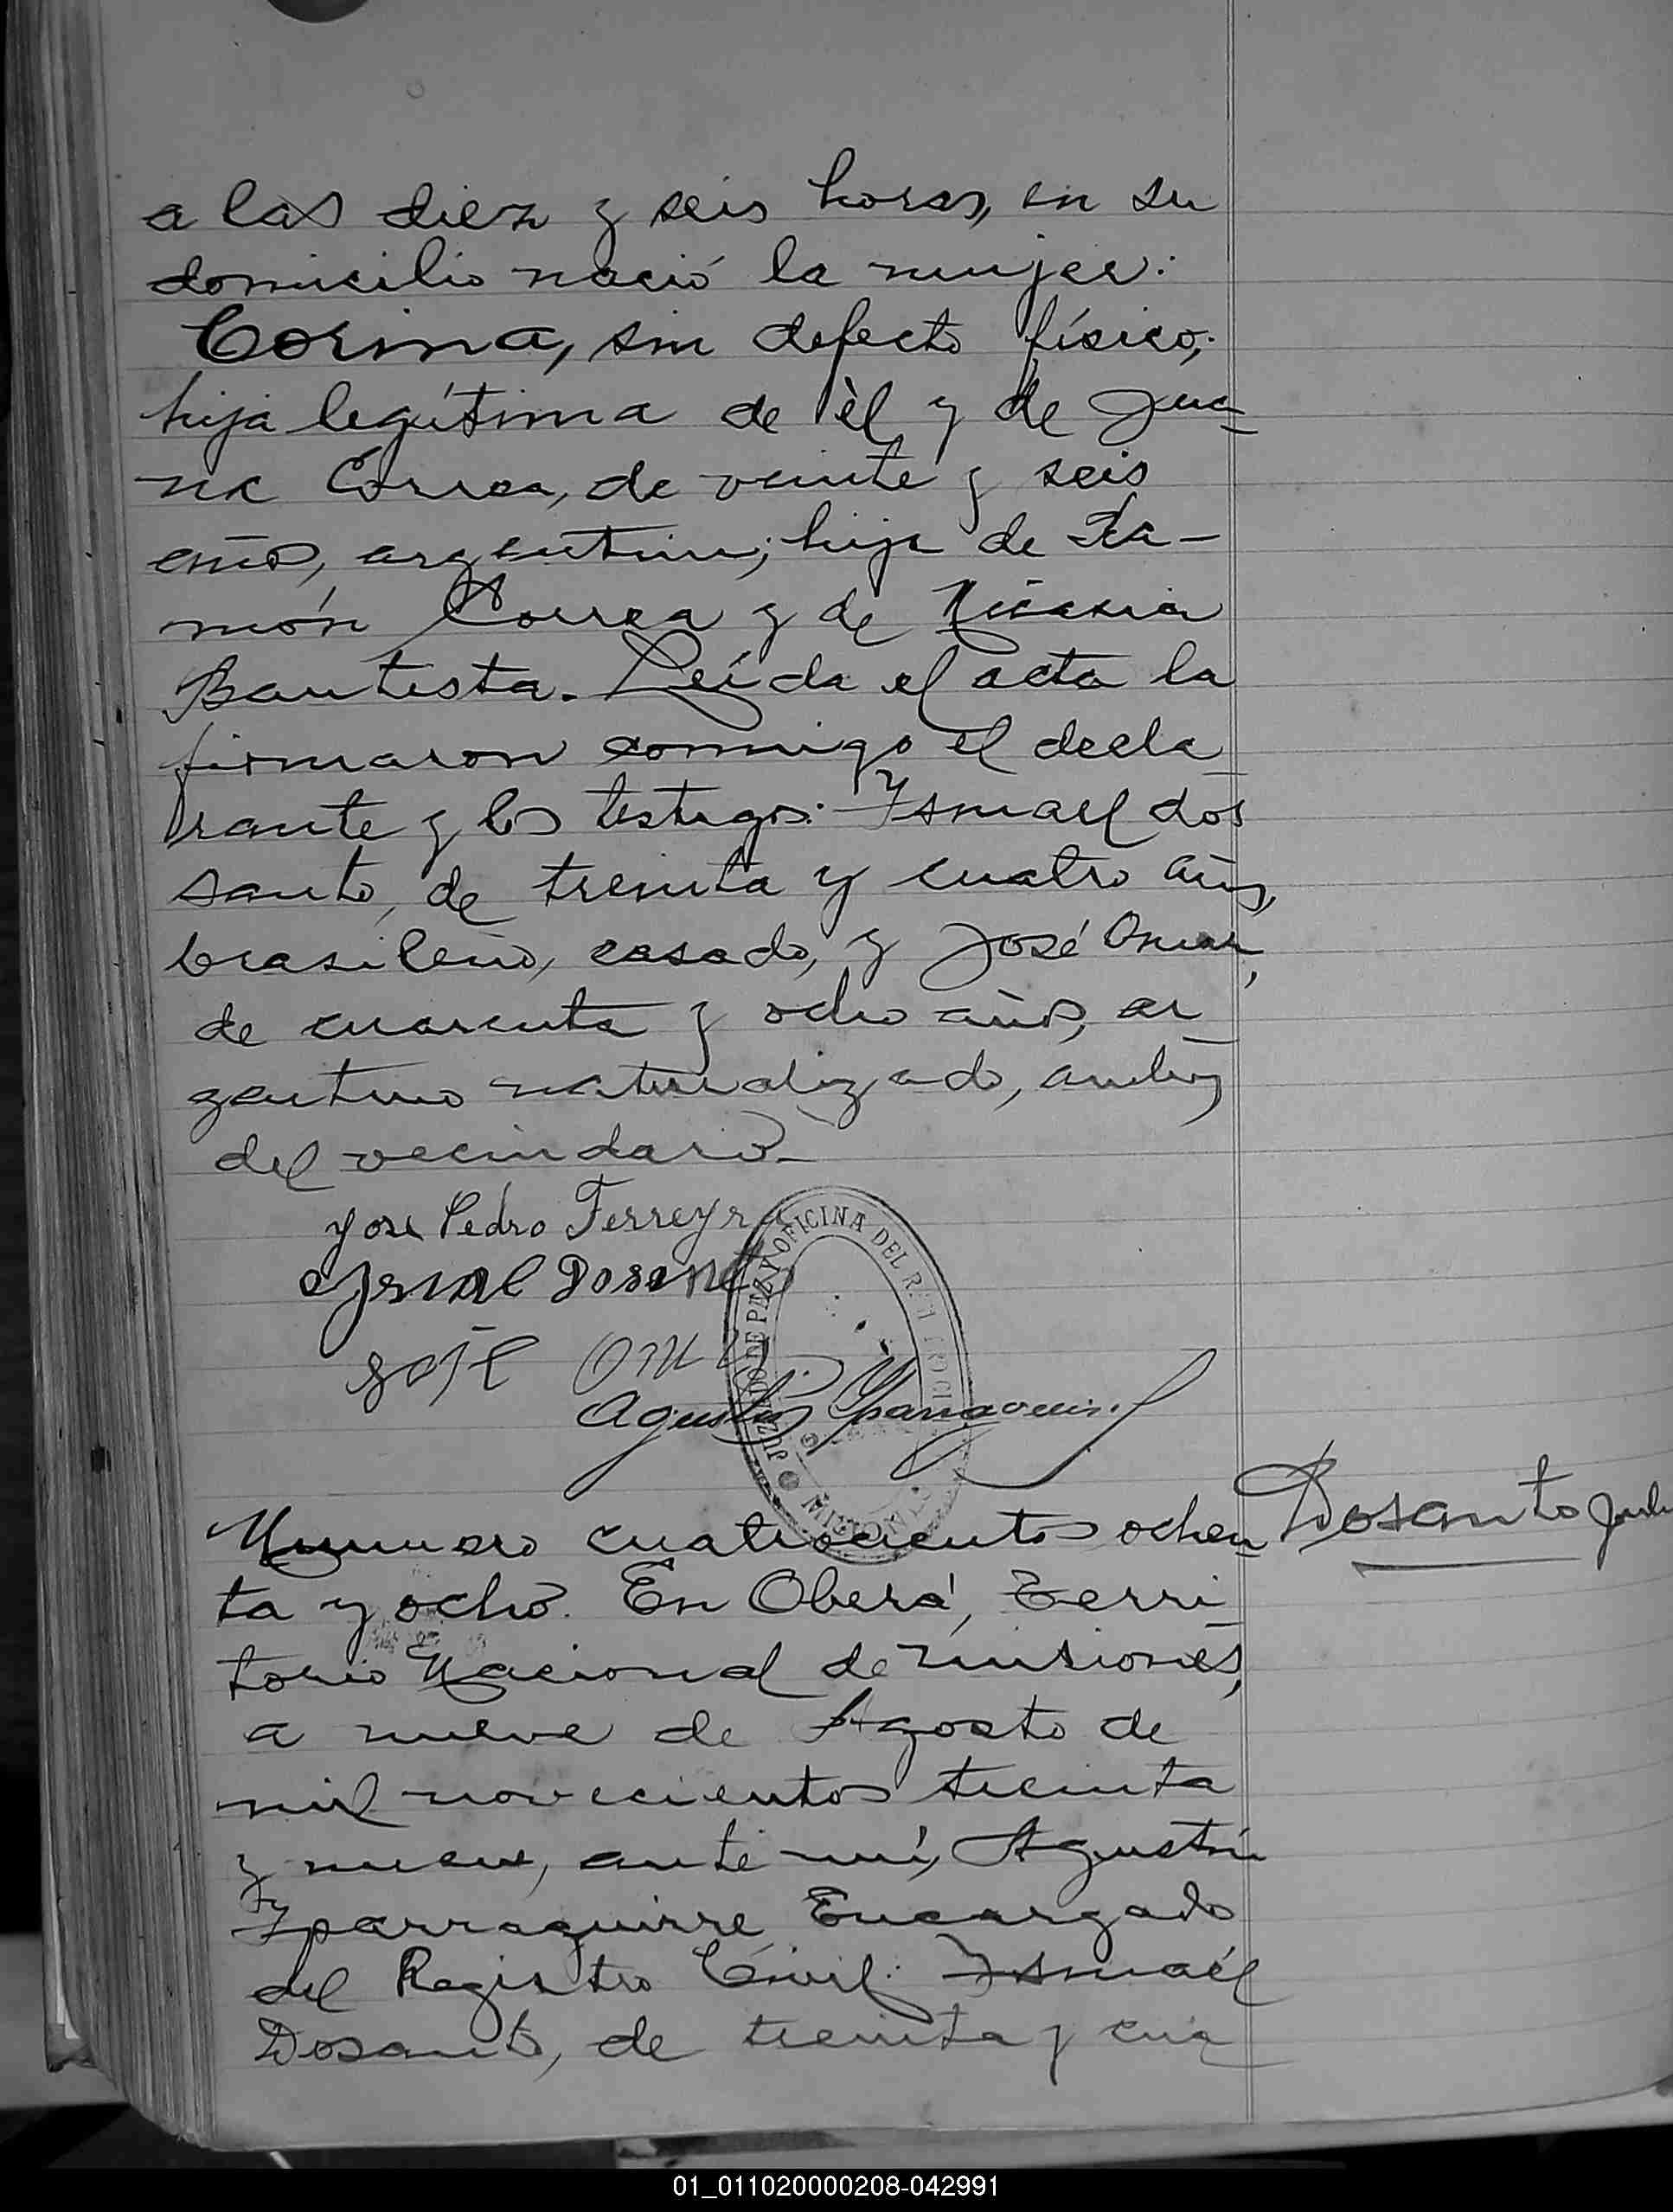 a las diez y seis horas, en su
domicilio nació la mujer:
Corina, sin defecto físico;
hija legítima de èl y de Jua-
na Correa, de veinte y seis
años, argentina; hija de Ra-
món Correa y de Nicasia
Bautista. Leída el acta la
firmaron conmigo el decla-
rante y los testigos: Ysmael dos
santo, de treinta y cuatro años,
brasileño, casado, y José Omar,
de cuarenta y ocho años, ar-
gentino naturalizado, ambos
del vecindario.-
Jose Pedro Ferreyra
José
Agustin Yparraguirre
JUZGADO DE PAZ Y OFICINA DEL R.
Numero cuatrocientos ochen-
ta y ocho. En Oberá, Terri-
torio Nacional de Misiones,
a nueve de Agosto de
mil novecientos treinta
y nueve, ante mí, Agustín
Yparraguirre Encargado
del Registro Civil: Ismaél
Dosanto, de treinta y cua
Dosanto
01_011020000208-042991